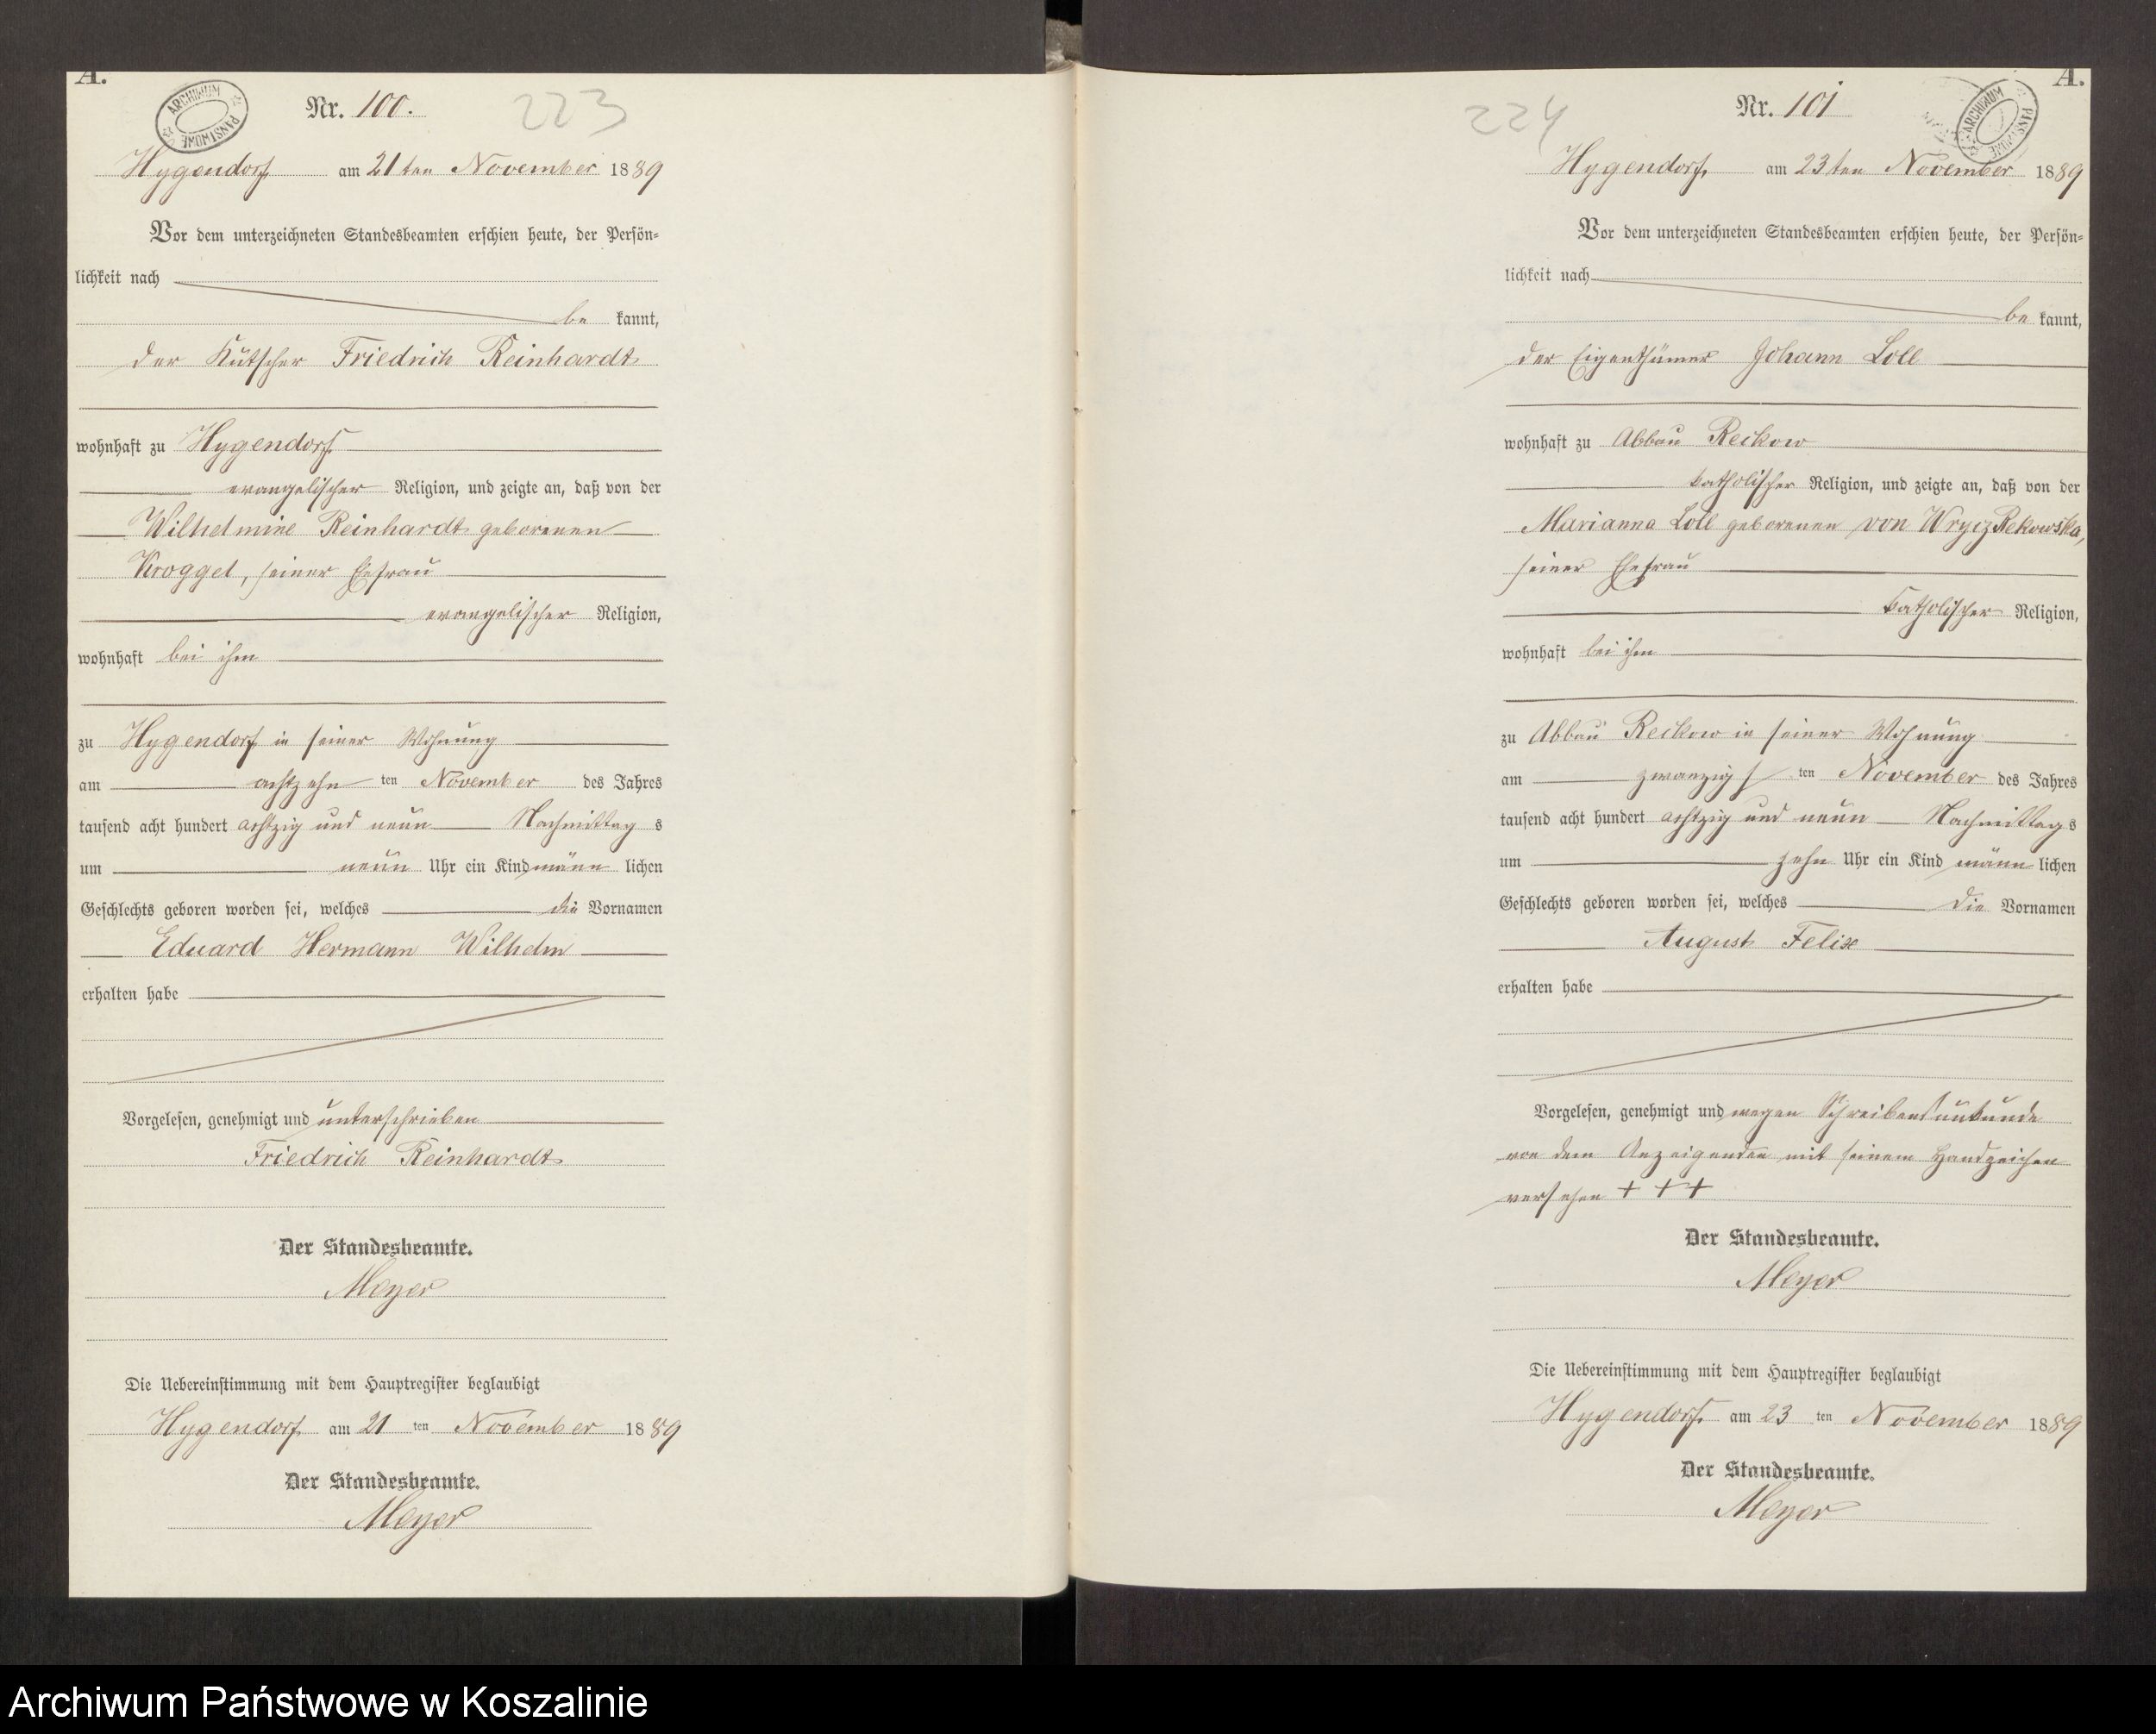 A.
ARCHIWUM PAŃSTWOWE
Nr. 100.
223
Hygendorf, am 21ten November 1889
Vor dem unterzeichneten Standesbeamten erschien heute, der Persön=
lichkeit nach
be kannt,
der Kutscher Friedrich Reinhardt
wohnhaft zu Hygendorf
evangelischer Religion, und zeigte an, daß von der
Wilhelmine Reinhardt geborenen
Krogget, seiner Ehefrau
evangelischer Religion,
wohnhaft bei ihm
zu Hygendorf in seiner Wohnung
am achtzehn ten November des Jahres
tausend acht hundert achtzig und neun Nachmittag s
um neun Uhr ein Kind männ lichen
Geschlechts geboren worden sei, welches die Vornamen
Eduard Hermann Wilhelm
erhalten habe
Vorgelesen, genehmigt und unterschrieben
Friedrich Reinhardt
Der Standesbeamte.
Meyer
Die Uebereinstimmung mit dem Hauptregister beglaubigt
Hygendorf am 21 ten November 1889
Der Standesbeamte.
Meyer
A.
ARCHIWUM PAŃSTWOWE
Nr. 101
224
Hygendorf, am 23ten November 1889
Vor dem unterzeichneten Standesbeamten erschien heute, der Persön=
lichkeit nach
be kannt,
der Eigenthümer Johann Loll
wohnhaft zu Abbau Reckow
katholischer Religion, und zeigte an, daß von der
Marianna Loll geborenen von Wrycz Rekowska,
seiner Ehefrau
katholischer Religion,
wohnhaft bei ihm
zu Abbau Reckow in seiner Wohnung
am zwanzigs ten November des Jahres
tausend acht hundert achtzig und neun Nachmittag s
um zehn Uhr ein Kind männ lichen
Geschlechts geboren worden sei, welches die Vornamen
August Felix
erhalten habe
Vorgelesen, genehmigt und wegen Schreibensunkunde
von dem Anzeigenden mit seinem Handzeichen
versehen + + +
Der Standesbeamte.
Meyer
Die Uebereinstimmung mit dem Hauptregister beglaubigt
Hygendorf, am 23 ten November 1889
Der Standesbeamte.
Meyer
Archiwum Państwowe w Koszalinie